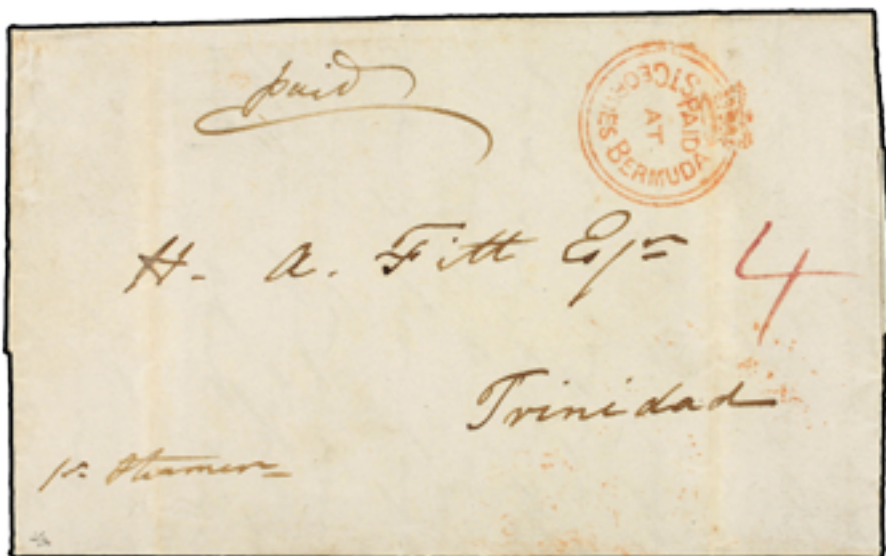 paid
PAID
AT
ST GEORGES BERMUDA
H. A. Fitt Esqr
4
Trinidad
pr Steamer